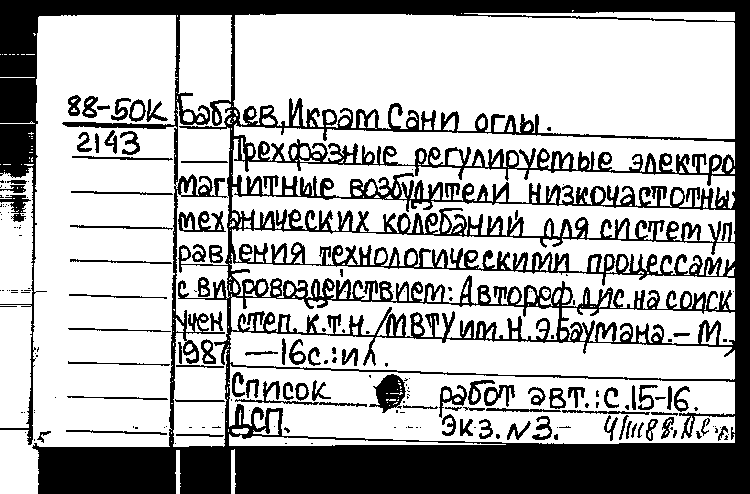 88-50К Бабаев, Икрам Сани оглы.
2143 Трехфазные регулируемые электро
магнитные возбудители низкочастотны
механических колебаний для систем уп-
равления технологическими процессами
с вибровоздействием: Автореф. дис. на соиск
учен. степ. к.т.н. /МВТУ им. Н.Э.Баумана. – М.,
1987 — 16с.: ил.
Список работ авт.: с.15-16.
ДСП. Экз. N3.
5